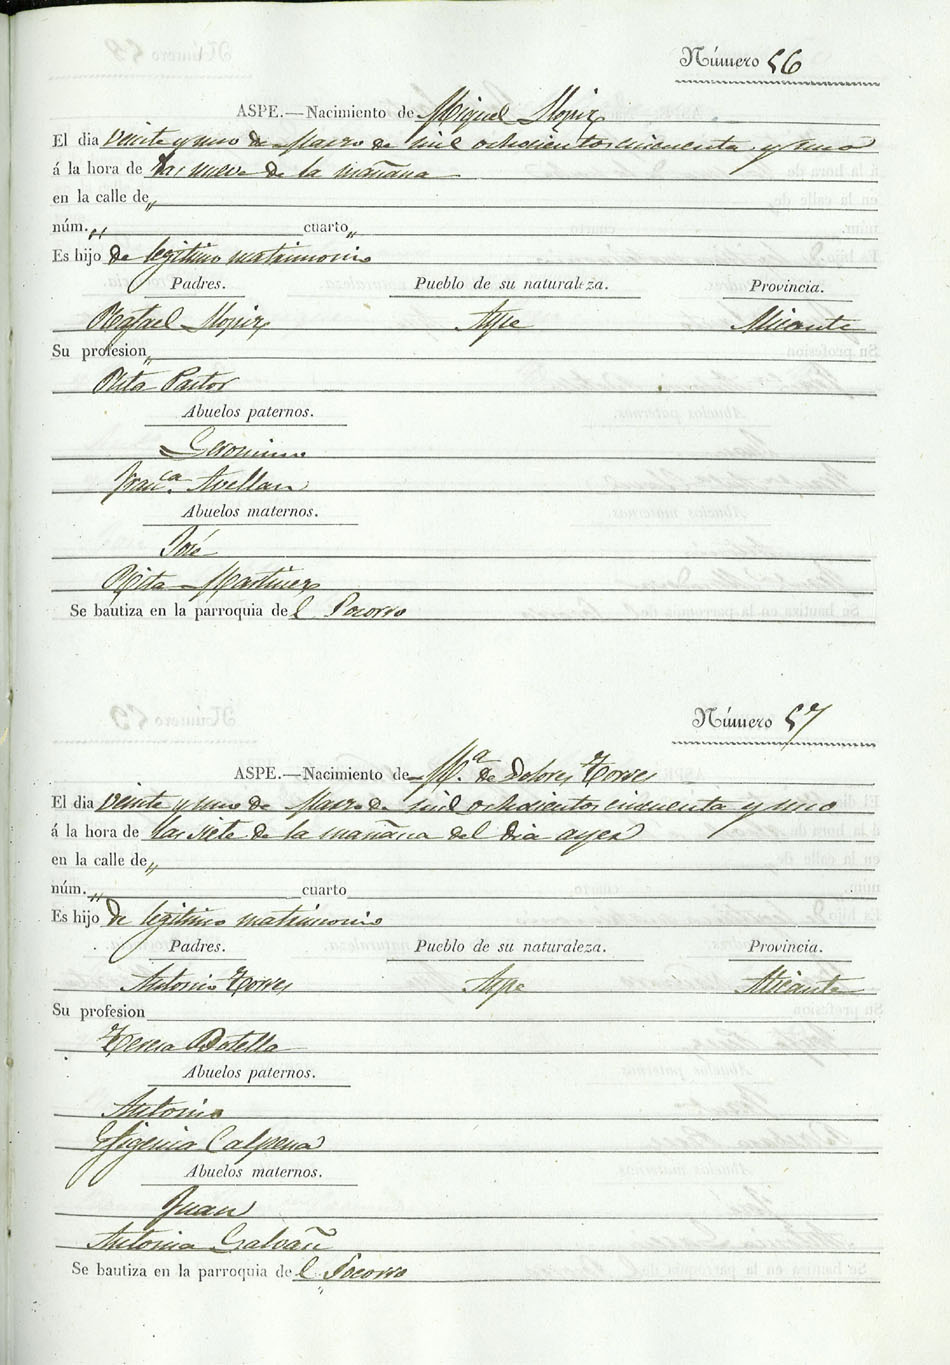 Número 56
ASPE.—Nacimiento de Miguel Llopiz
El dia veinte y uno de Marzo de mil ochocientos cincuenta y uno
á la hora de las nueve de la mañana
en la calle de „
núm. „ cuarto „
Es hijo de legitimo matrimonio
Padres. Pueblo de su naturaleza. Provincia.
Rafael Llopiz Aspe Alicante
Su profesion „
Rita Pastor
Abuelos paternos.
Geronimo
Franca. Avellan
Abuelos maternos.
José
Rita Martinez
Se bautiza en la parroquia del Socorro
Número 57
ASPE.—Nacimiento de Ma. de Dolores Torres
El dia veinte y uno de Marzo de mil ochocientos cincuenta y uno
á la hora de las siete de la mañana del dia ayer
en la calle de „
núm. „ cuarto
Es hijo de legitimo matrimonio
Padres. Pueblo de su naturaleza. Provincia.
Antonio Torres Aspe Alicante
Su profesion
Teresa Botella
Abuelos paternos.
Antonio
Efigenia Calpena
Abuelos maternos.
Juan
Antonia Galvañ
Se bautiza en la parroquia del Socorro